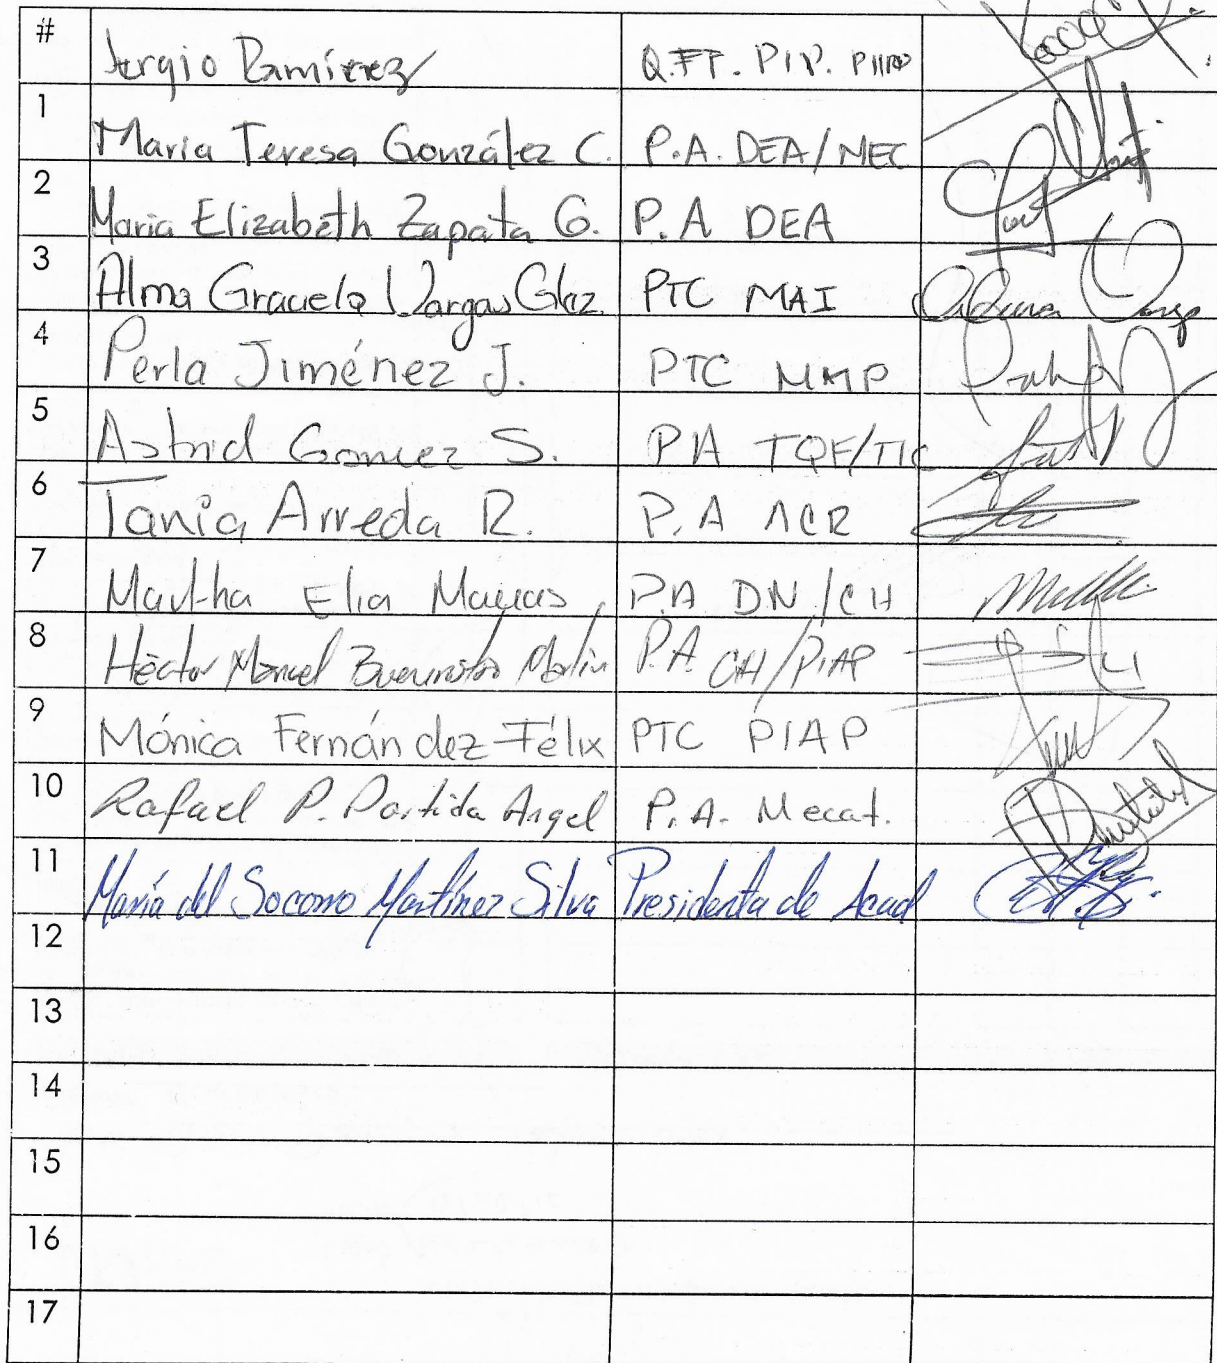 # Sergio Ramírez Q.FT. PIP.
1 María Teresa González C. P.A. DEA/MEC
2 Maria Elizabeth Zapata G. P.A DEA
3 Alma Graciela Vargas Glez. PTC MAI
4 Perla Jiménez J. PTC MMP
5 Astrid Gomez S. PA TQF/TIC
6 Tania Arreda R. P.A ACR
7 Martha Elia Macias P.A DN/CH
8 Héctor Manuel P.A. CH/PIAP
9 Mónica Fernández Félix PTC PIAP
10 Rafael P. Partida Angel P.A. Mecat.
11 María del Socorro Martínez Silva Presidenta de Acad
12
13
14
15
16
17